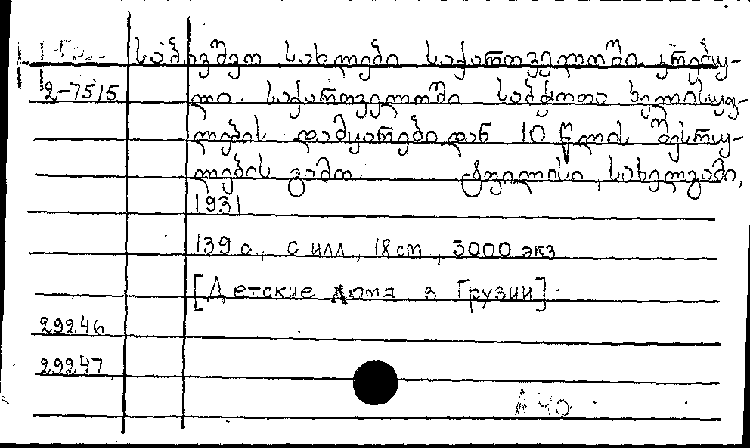 საბავშვო სახლები საქართველოში. კრებუ-
2-7515 ლი. საქართველოში საბჭოთა ხელისუფ-
ლების დამყარებიდან 10 წლის შესრუ-
ლების გამო. ტფილისი, სახელგამი,
1931
139 с., с илл., 18 см, 3000 экз
[Детские дома в Грузии]
29246
29247
А 40